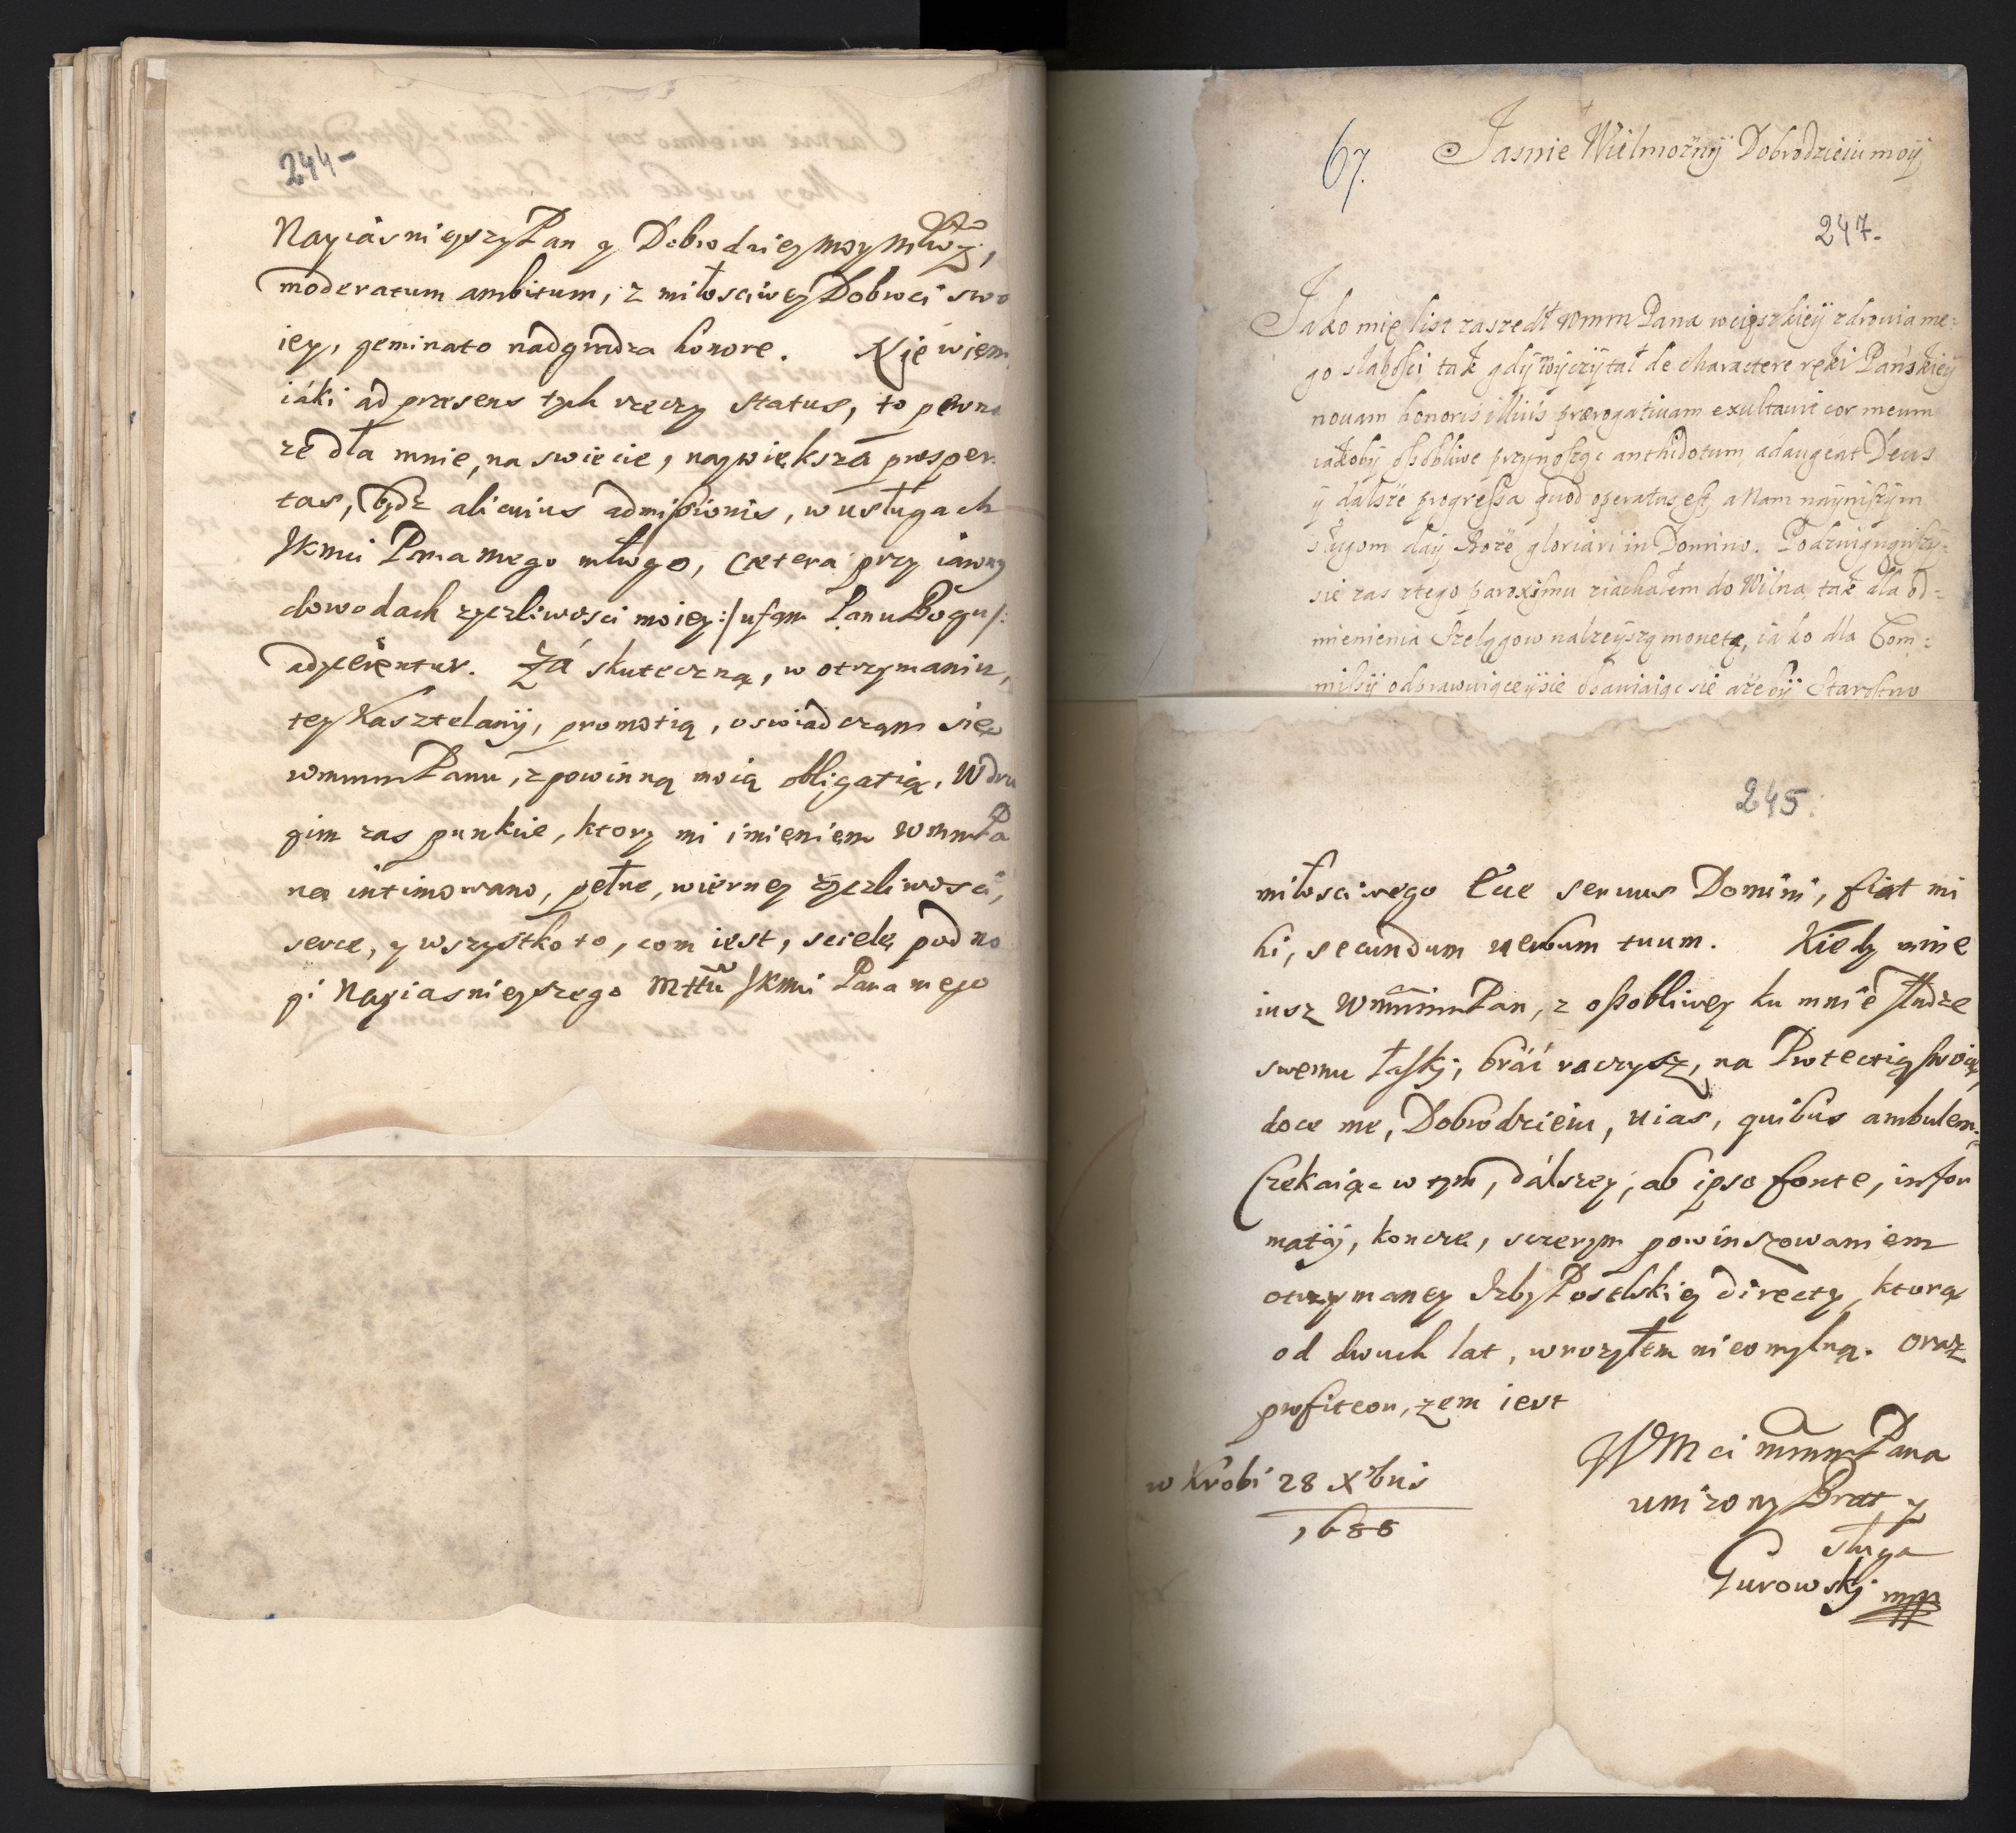 244-
Nayiásnieyszy Pan y Dobrodziey moy Mlwy,
moderatum ambitum, z miłosciwey Dobroci swo
iey, geminato nadgradza honore. Nie wiem
iáki ad præsens tych rzeczy status, to pewna
ze dla mnie, na swiecie, naywiększa prosper
tas, bydz alicuius admissionis, w usługach
JKmci Pana mego mlwgo, Cætera przy iawny
dowodach zyczliwosci moiey :/ ufam Panu Bogu /:
adycientur. Zá skuteczną, w otrzymaniu,
tey Kasztelanij, promotią, oswiadczam się
wmmm Panu, z powinną moią obligatią. W dru
gim zas punkcie, ktory mi imieniem wmm Pa
na intimowano, pełne, wierney zyczliwosci,
serce, y wszystko to, com iest, scielę pod no
gi Nayiasnieyszego Mttu JKmci Pana mego
67.
Jasnie Wielmożnÿ Dobrodzieiu moÿ
247.
Jako mię list zaszedł wmm Pana w cięszkieÿ zdrowia me:
go słabosci tak gdÿ wÿczÿtał de charactere ręki Pańskieÿ
nouam honoris illius prærogatiuam exultauit cor meum
iakobÿ osobliwe przynosząc anthidotum, adaugeat Deus
ÿ dalsze progressa quod operatus est, a Nam naÿniszÿm
sługom daÿ Boże gloriari in Domino. Podzwignąwszÿ
sie zas z tego paroxismu ziachałem do Wilna tak dla od=
mienienia Szelągow na lzeÿszą monetę, iako dla Com=
missÿ odprawuiąceÿ sie obawiaiąc sie ażebÿ Starostwo
245.
miłosciwego Ecce seruus Domini, fiat mi
hi, secundum uerbum tuum. Kiedy mnie
iusz Wmmm Pan, z osobliwey ku mnie słudze
swemu łaski, bráć raczysz, na Protectią swoię,
doce me, Dobrodzieiu, uias, quibus ambulem.
Czekaiąc w tym, dálszey, ab ipso fonte, infor
matij, koncze, sczerym powinszowaniem
otrzymaney Izby Poselskiey directy, ktorą
od dwuch lat, wrozyłem nieomylną. oraz
profiteor, zem iest
WMci mmm Pana
unizony Brat y
sługa
Gurowskj mpp
w Krobi 28 Xbris
1688